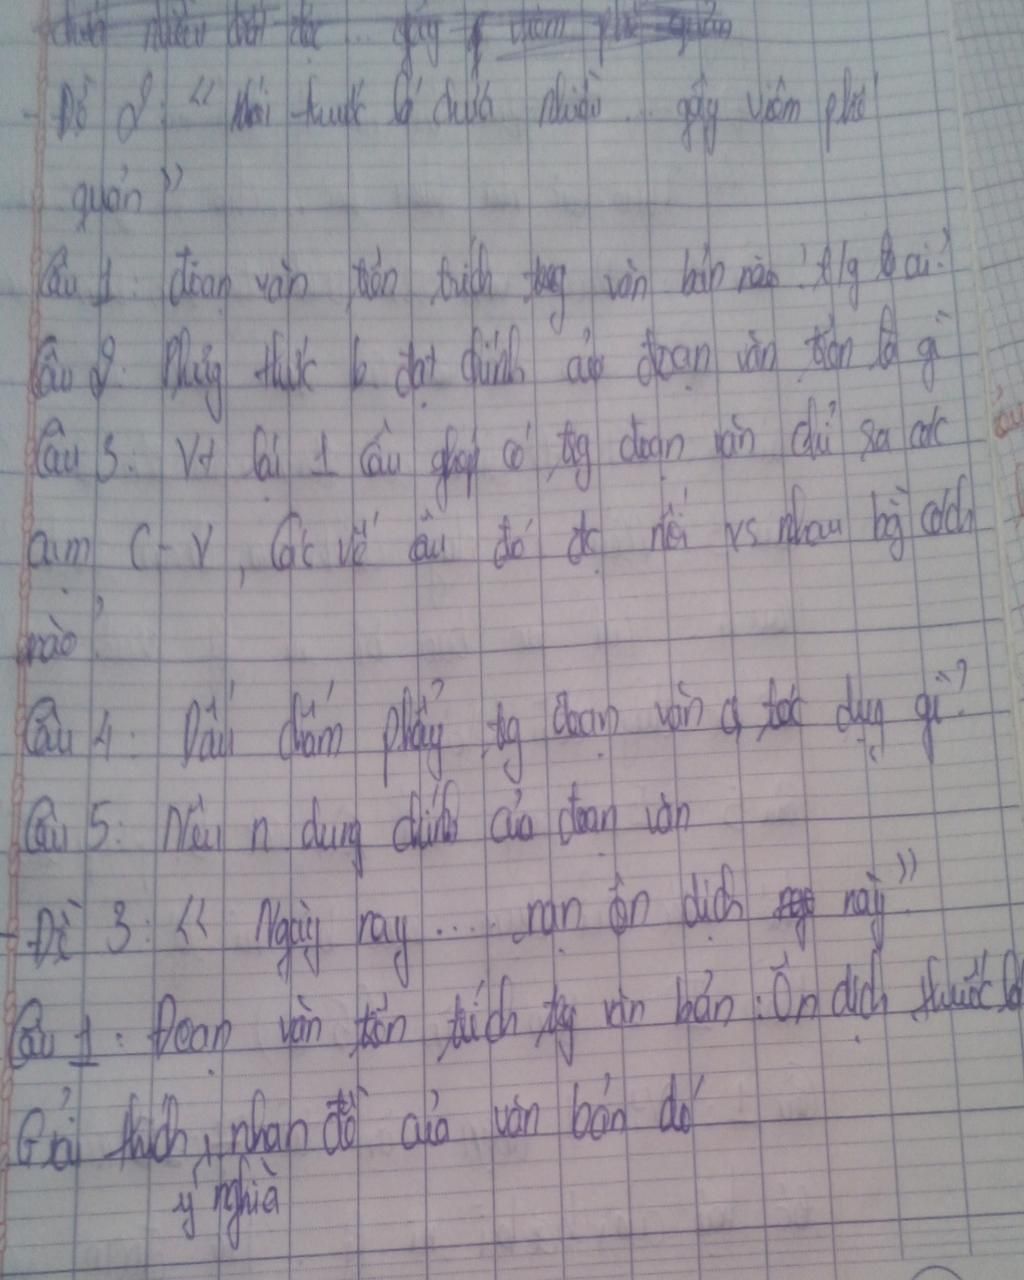 chứa nhiều chất độc .. gây viêm phế quản
- Đề 2: " Khói thuốc lá chứa nhiều ... gây viêm phế
quản "
Câu 1: đoạn văn trên trích trong văn bản nào? t/g là ai?
Câu 2: Phương thức b đạt chính của đoạn văn trên là gì
Câu 3: Vt lại 1 câu ghép có tg đoạn văn chỉ ra các
cụm C-V, Các vế câu đó đc nối vs nhau bg cách
nào?
Câu 4: Dấu chấm phẩy tg đoạn văn có tác dụng gì?
Câu 5: Nêu n dung chính của đoạn văn
- Đề 3: " Ngày nay .... nạn ôn dịch này "
Câu 1: Đoạn văn trên trích tg văn bản: Ôn dịch thuốc lá
Giải thích ý nghĩa nhan đề của văn bản đó